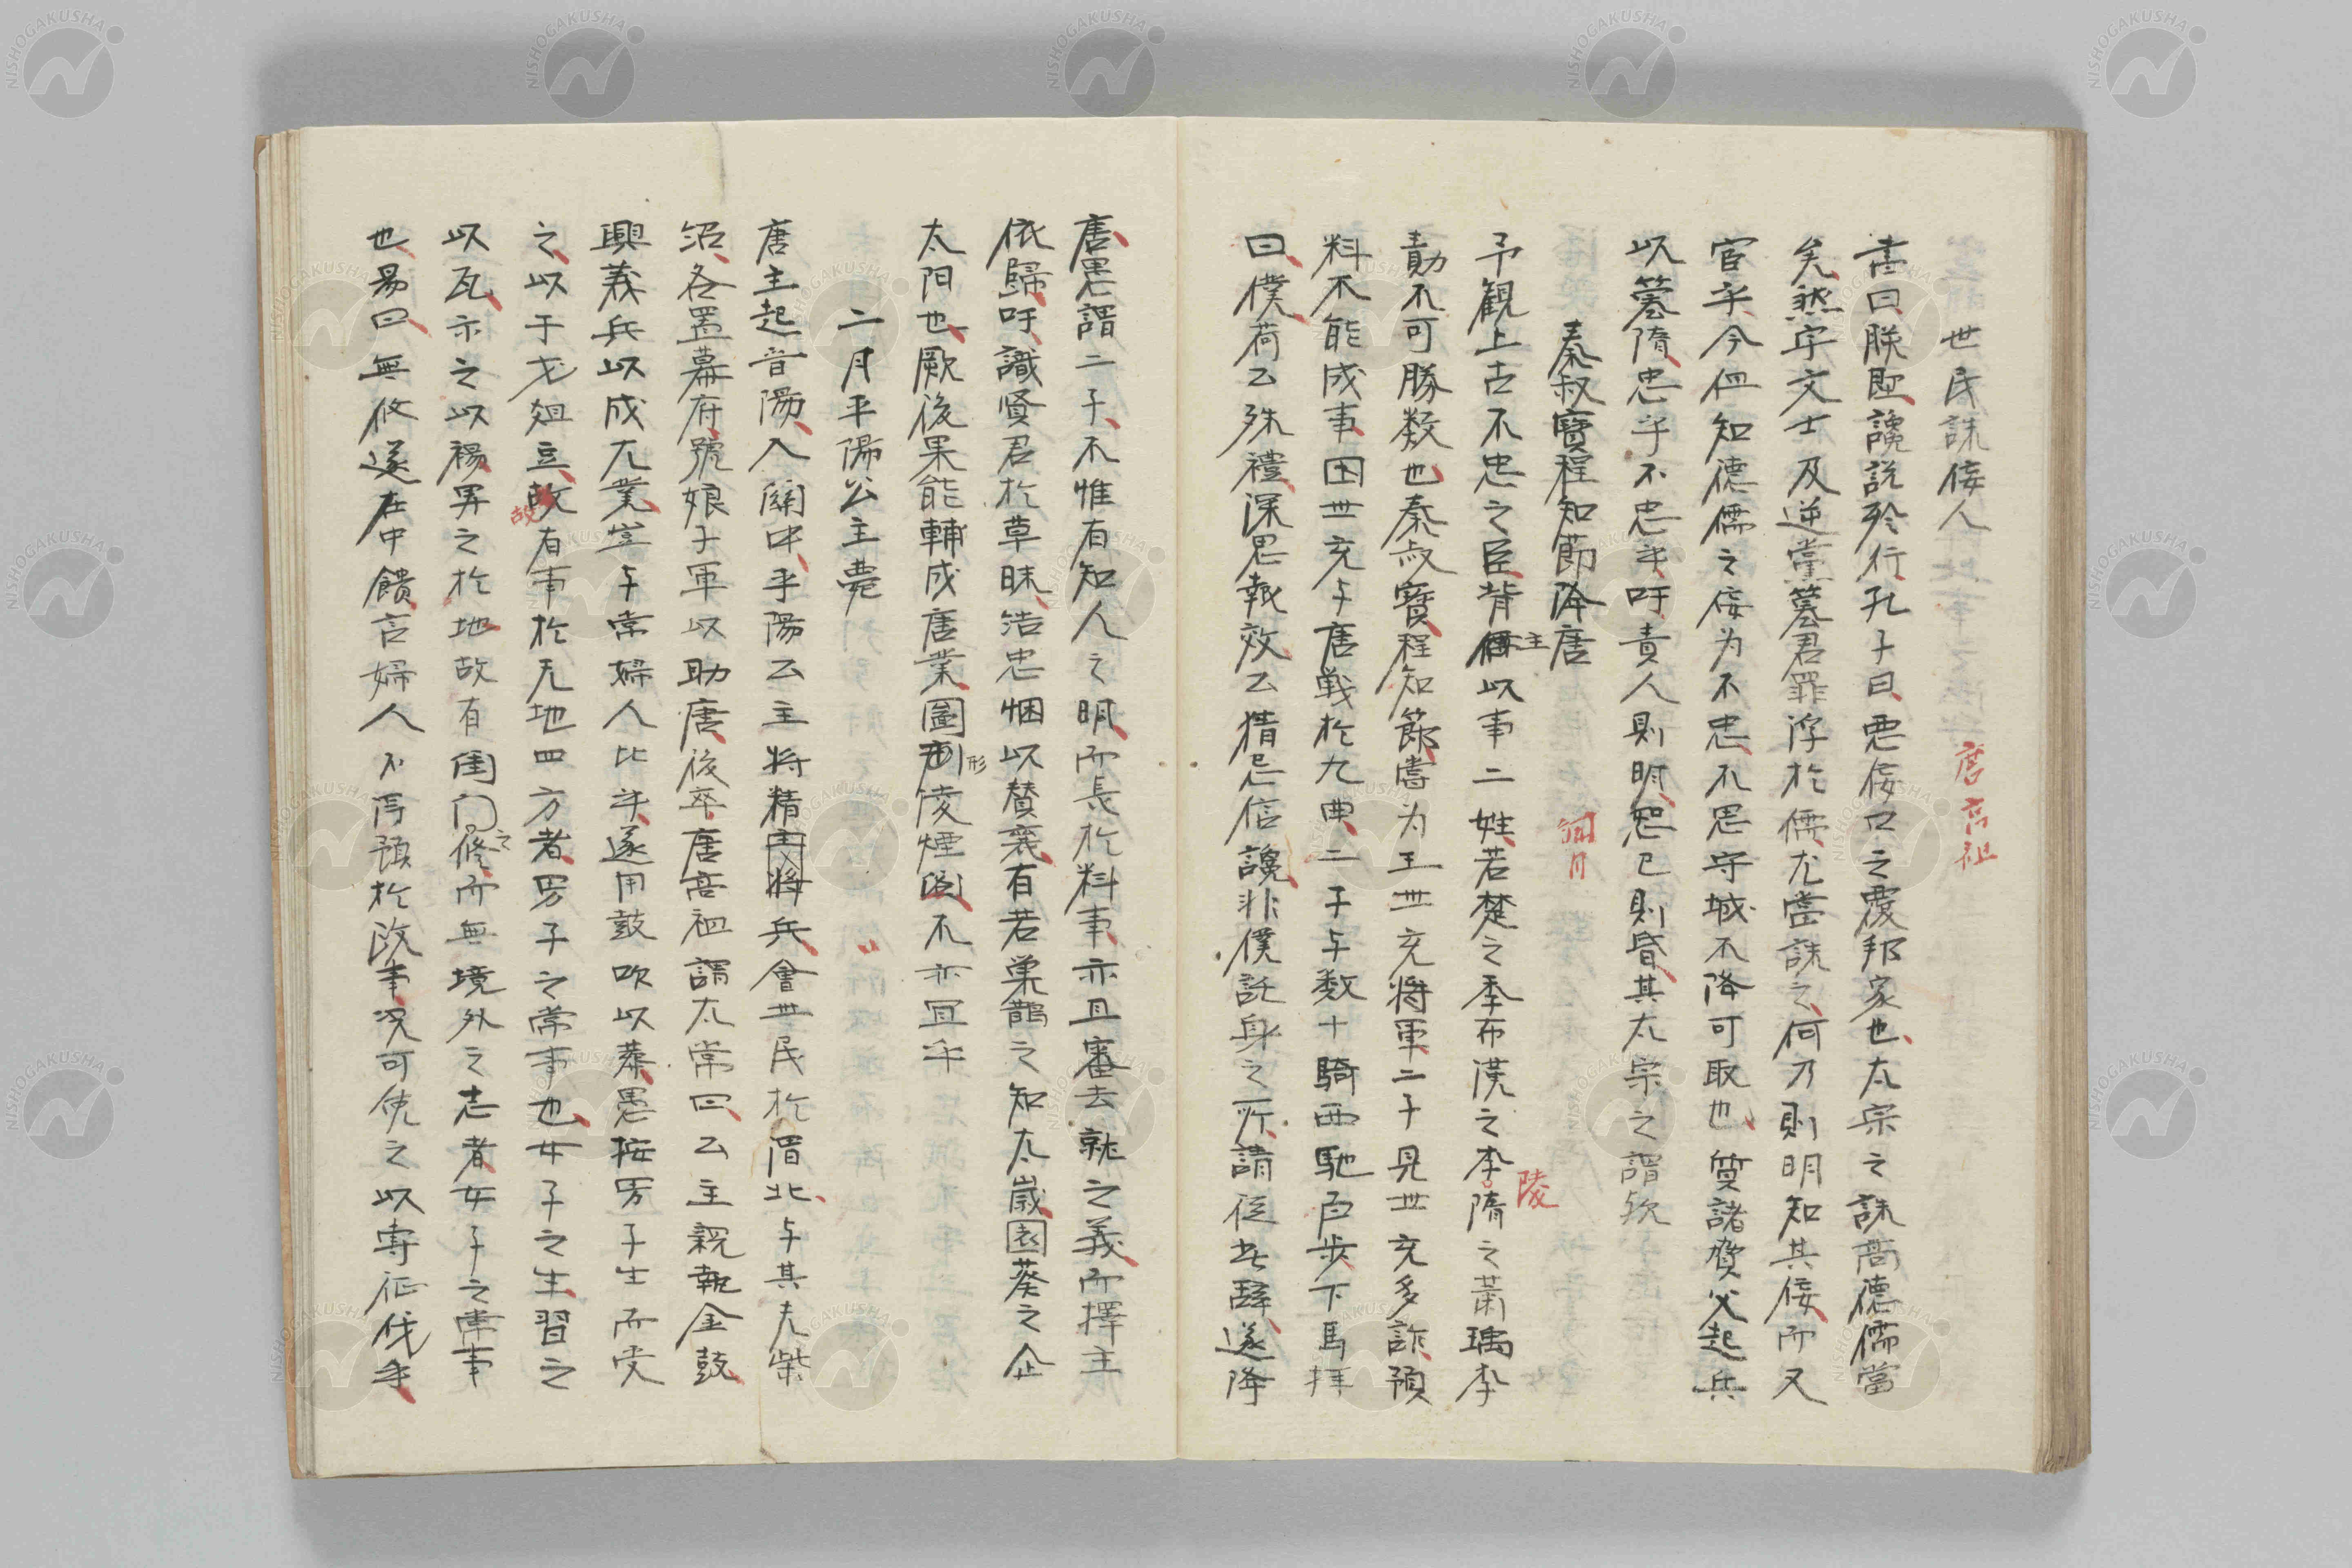 世民誅佞人
唐高祖
書曰朕堲讒說殄行孔子曰惡佞口之覆邦家也太宗之誅高德儒當
矣然宇文士及逆黨簒君罪浮於儒尤當誅之何乃則明知其佞而又
官乎今但知德儒之佞为不忠不思守城不降可取也質諸殺父起兵
以簒隋忠乎不忠乎吁責人則明恕己則昏其太宗之謂歟
秦叔寶程知節降唐
閏月
予観上古不忠之臣背主以事二姓若楚之季布漢之李陵隋之蕭瑀李
勣不可勝数也秦叔寶程知節嘗为王世充將軍二子見世充多詐預
料不能成事因世充与唐戰於九曲二子与数十騎西馳百步下馬拜
曰僕荷公殊禮深思報效公猜忌信讒非僕託身之所請從此辭遂降
唐愚謂二子不惟有知人之明而長於料事亦且審去就之義而擇主
依歸吁識賢君於草昧浩忠悃以賛襄有若巢鵲之知太歲園葵之企
太阳也厥後果能輔成唐業圖形凌煙阁不亦宜乎
二月平陽公主薨
唐主起晋陽入關中平陽公主將精兵會世民於渭北与其夫柴
紹各置幕府號娘子軍以助唐後卒唐高祖謂太常曰公主親執金鼓
興義兵以成大業豈与常婦人比乎遂用鼓吹以葬愚按男子生而突
之以于戈俎豆故有事於天地四方者男子之常事也女子之生習之
以瓦示之以裼寿之於地故有闺门之修而無境外之志者女子之常事
也易曰無攸遂在中饋言婦人不得預於政事况可使之以專征伐乎
NISHOGAKUSHA